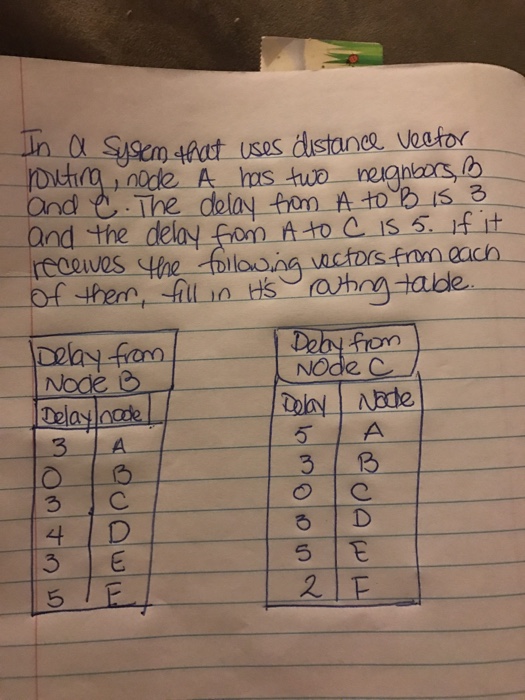 In a system that uses distance vector
routing, node A has two neighbors, B
and C. The delay from A to B is 3
and the delay from A to C is 5. if it
receives the following vectors from each
of them, fill in it's routing table.
Delay from
Node B
Delay node
3 A
0 B
3 C
4 D
3 E
5 F
Delay from
Node C
Delay Node
5 A
3 B
0 C
3 D
5 E
2 F